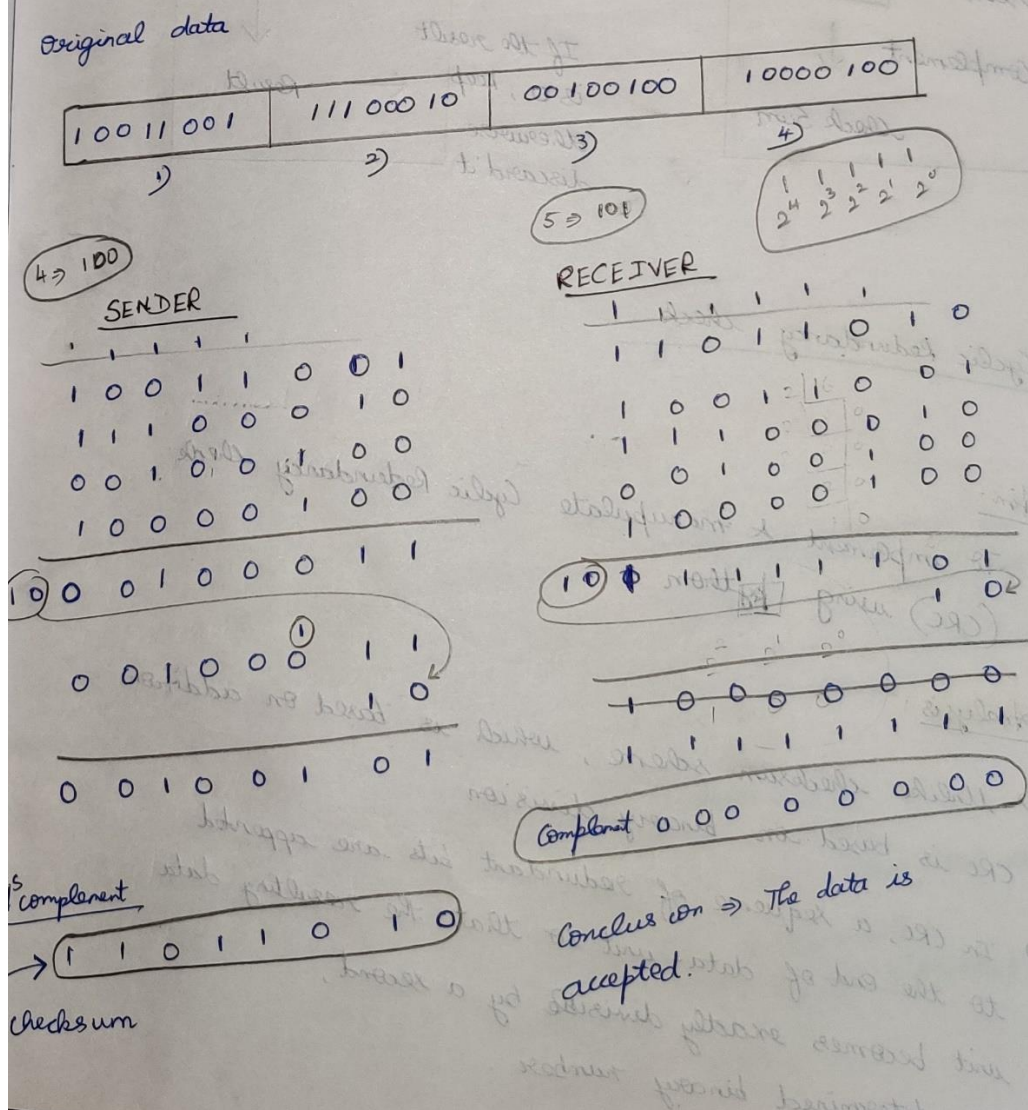 Original data
10011001 11100010 00100100 10000100
1) 2) 3) 4)
1 1 1 1 1
2^4 2^3 2^2 2^1 2^0
5 ⇒ 101
4 ⇒ 100
SENDER
1 1 1 1 1
1 0 0 1 1 0 0 1
1 1 1 0 0 0 1 0
0 0 1 0 0 1 0 0
1 0 0 0 0 1 0 0
1 0 0 0 1 0 0 0 1 1
1
0 0 1 0 0 0 1 1
1 0
0 0 1 0 0 1 0 1
1's complement
→ 1 1 0 1 1 0 1 0
checksum
RECEIVER
1 1 1 1 1 1
1 1 0 1 1 0 1 0
1 0 0 1 1 0 0 1
1 1 1 0 0 0 1 0
0 0 1 0 0 1 0 0
1 0 0 0 0 1 0 0
1 0 1 1 1 1 1 1 0 1
1 0
1 0 0 0 0 0 0 0
1 1 1 1 1 1 1 1
Complemet 0 0 0 0 0 0 0 0
Conclusion ⇒ The data is
accepted.